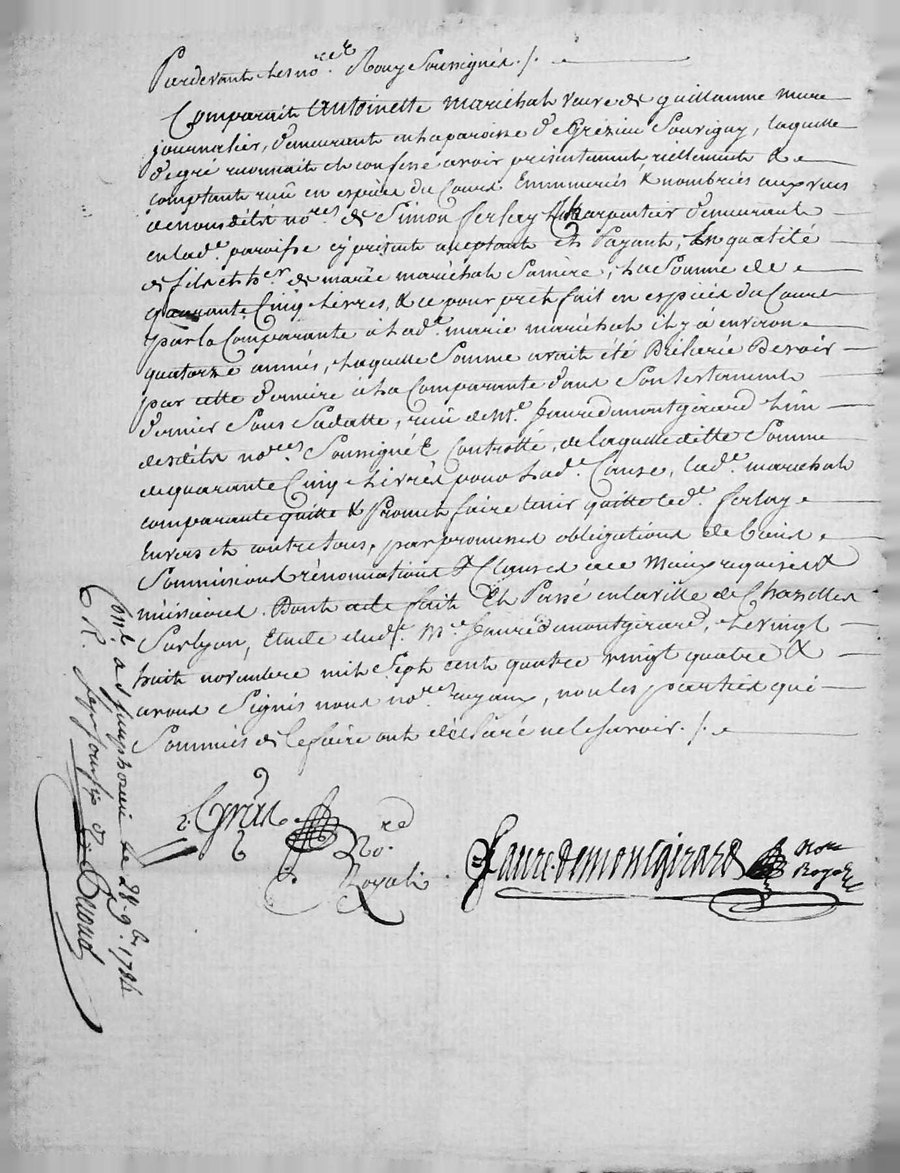 Pardevant Les no.res Roux Soussignés ./.
Comparait Antoinette maréchal veuve de guillaume mure
journalier, demeurant en la paroisse de Grézieu Souvigny, laquelle
de gré reconnait et confesse avoir présentement, réellement &
comptant reçu en espèces du Cours Emmerciés & nombriés aux vues
de nous dits no.res de Simon ferlay Charpentier demeurant
en lad.e paroisse cy présent acceptant et Payant, En qualité
de fils et h.er de marie maréchal Sa mère, La Somme de
quarante Cinq Livres, & ce pour prêt fait en espèces du Cours
par la Comparante à Lad.e marie maréchal il y a environ
quatorze années, Laquelle Somme avait été Déclarée Devoir
par cette dernière à La Comparante dans Son testament
dernier Sous Sa datte, reçu de M.e faure demontgirard L'un
desdits no.res Soussigné & Controllé, de laquelle ditte Somme
de quarante Cinq Livres pour Lad.e Cause, Lad.e maréchal
comparante quitte & Promet faire tenir quitte led.t ferlay
Envers et contre tous, par promesses obligations de biens
Soumissions rénonciations & Clauses a ce requises &
nécessaires. Dont acte fait Et Passé en la ville de Chazelles
Sur lyon, Etude dud.t M.e faure demontgirard, Le vingt
huit novembre mil Sept cent quatre vingt quatre &
avons Signés nous no.res royaux, non les parties qui
Sommées de le faire ont déclaré ne le Savoir ./.
No.re
Royal
Faure demontgirard
No.re
Royal
Con.lé a S.t Simphorien Le 28. 9.bre 1784
R.